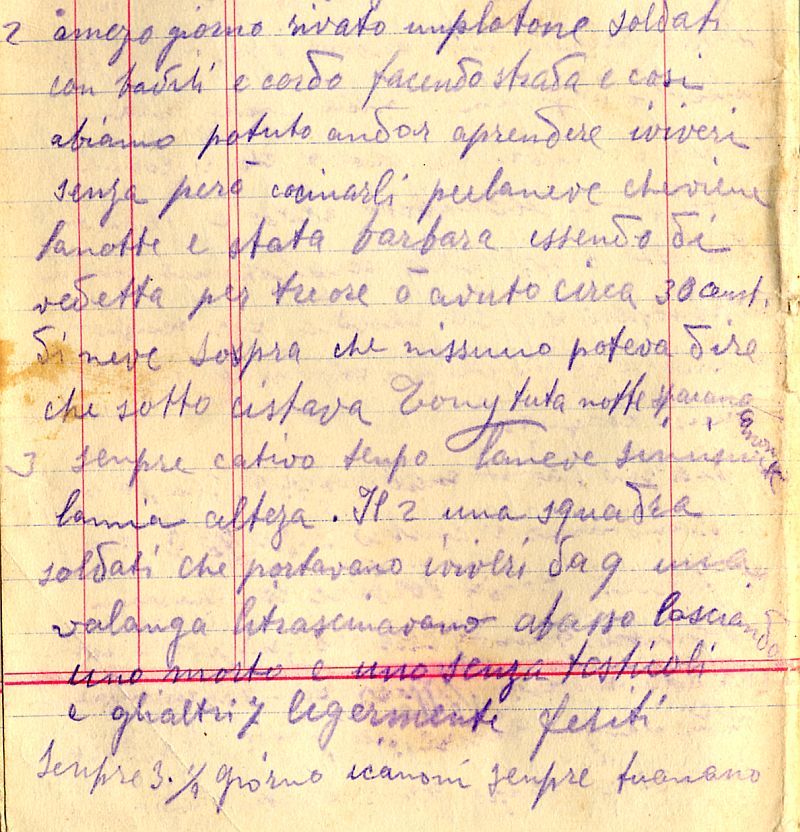 2 amezo giorno rivato unplotone soldati
con badili e corde facendo strada e cosi
abiamo potuto andar aprendere iviveri
senza però cocinarli perlaneve cheviene
lanotte e stata barbara essendo di
vedetta per treore ò avuto circa 30 cent.
di neve sospra che nissuno poteva dire
che sotto cistava Tony tuta notte
3 senpre cativo tenpo laneve
lamia alteza. Il 2 una squadra
soldati che portavano iviveri da 9 una
valanga litrascinavano abasso lasciando
uno morto e uno senza testicoli
e glialtri 7 legermente feriti
Senpre 3. 1/2 giorno icanoni senpre tuanano